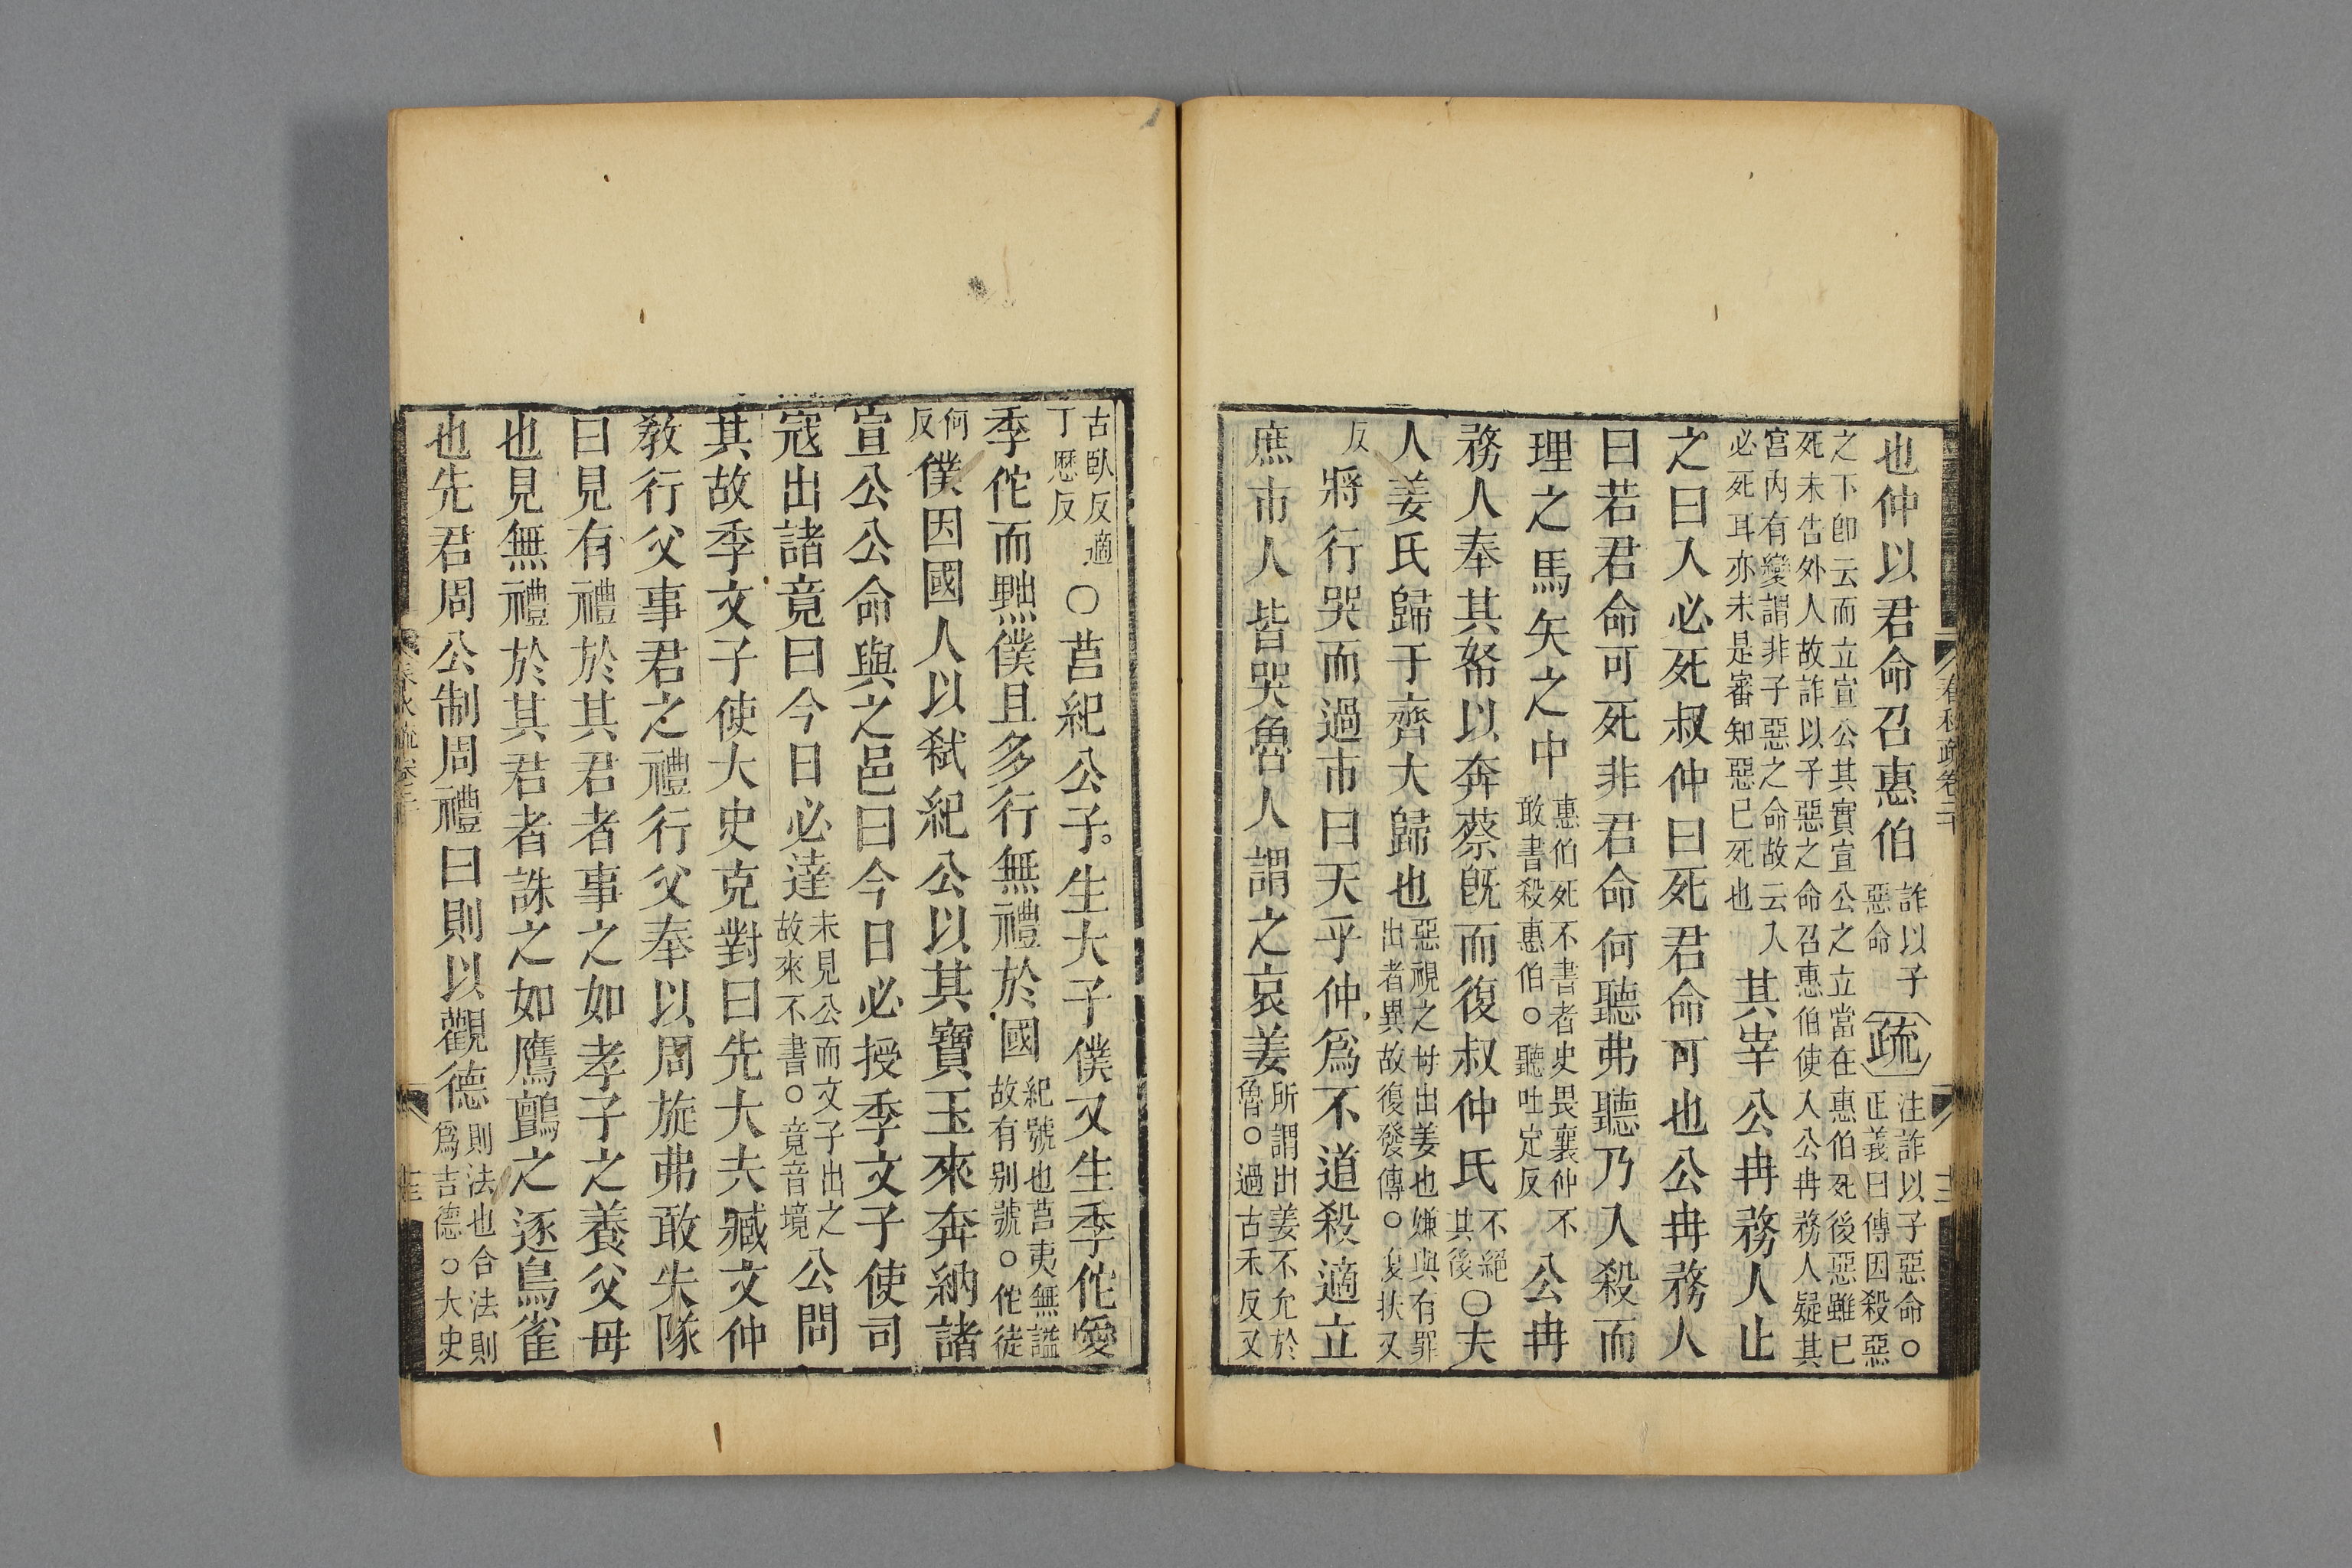 也仲以君命召惠伯詐以子惡命疏注詐以子惡命○正義曰傳因殺惡
之下卽云而立宣公其實宣公之立當在惠伯死後惡雖已死未告外人故詐以子惡之命召惠伯使入公冉務人疑其
宮内有變謂非子惡之命故云入必死耳亦未是審知惡已死也其宰公冉務人止
之曰入必死叔仲曰死君命可也公冉務人
曰若君命可死非君命何聽弗聽乃入殺而
埋之馬矢之中惠伯死不書者史畏襄仲不敢書殺惠伯○聽吐定反公冉
務人奉其帑以奔蔡旣而復叔仲氏不絕其後○夫
人姜氏歸于齊大歸也惡視之母出姜也嫌與有罪出者異故復發傳○復扶又
反將行哭而過市曰天乎仲爲不道殺適立
庶市人皆哭魯人謂之哀姜所謂出姜不允於魯○過古禾反又
春秋疏卷二十
十二
古臥反適丁歷反○莒紀公子生大子僕又生季佗愛
季佗而黜僕且多行無禮於國紀號也莒夷無謚故有别號○佗徒
何反僕因國人以弒紀公以其寶玉來奔納諸
宣公公命與之邑曰今日必授季文子使司
寇出諸竟曰今日必達未見公而文子出之故來不書○竟音境公問
其故季文子使大史克對曰先大夫臧文仲
敎行父事君之禮行父奉以周旋弗敢失隊
曰見有禮於其君者事之如孝子之養父母
也見無禮於其君者誅之如鷹鸇之逐鳥雀
也先君周公制周禮曰則以觀德則法也合法則爲吉德○大史